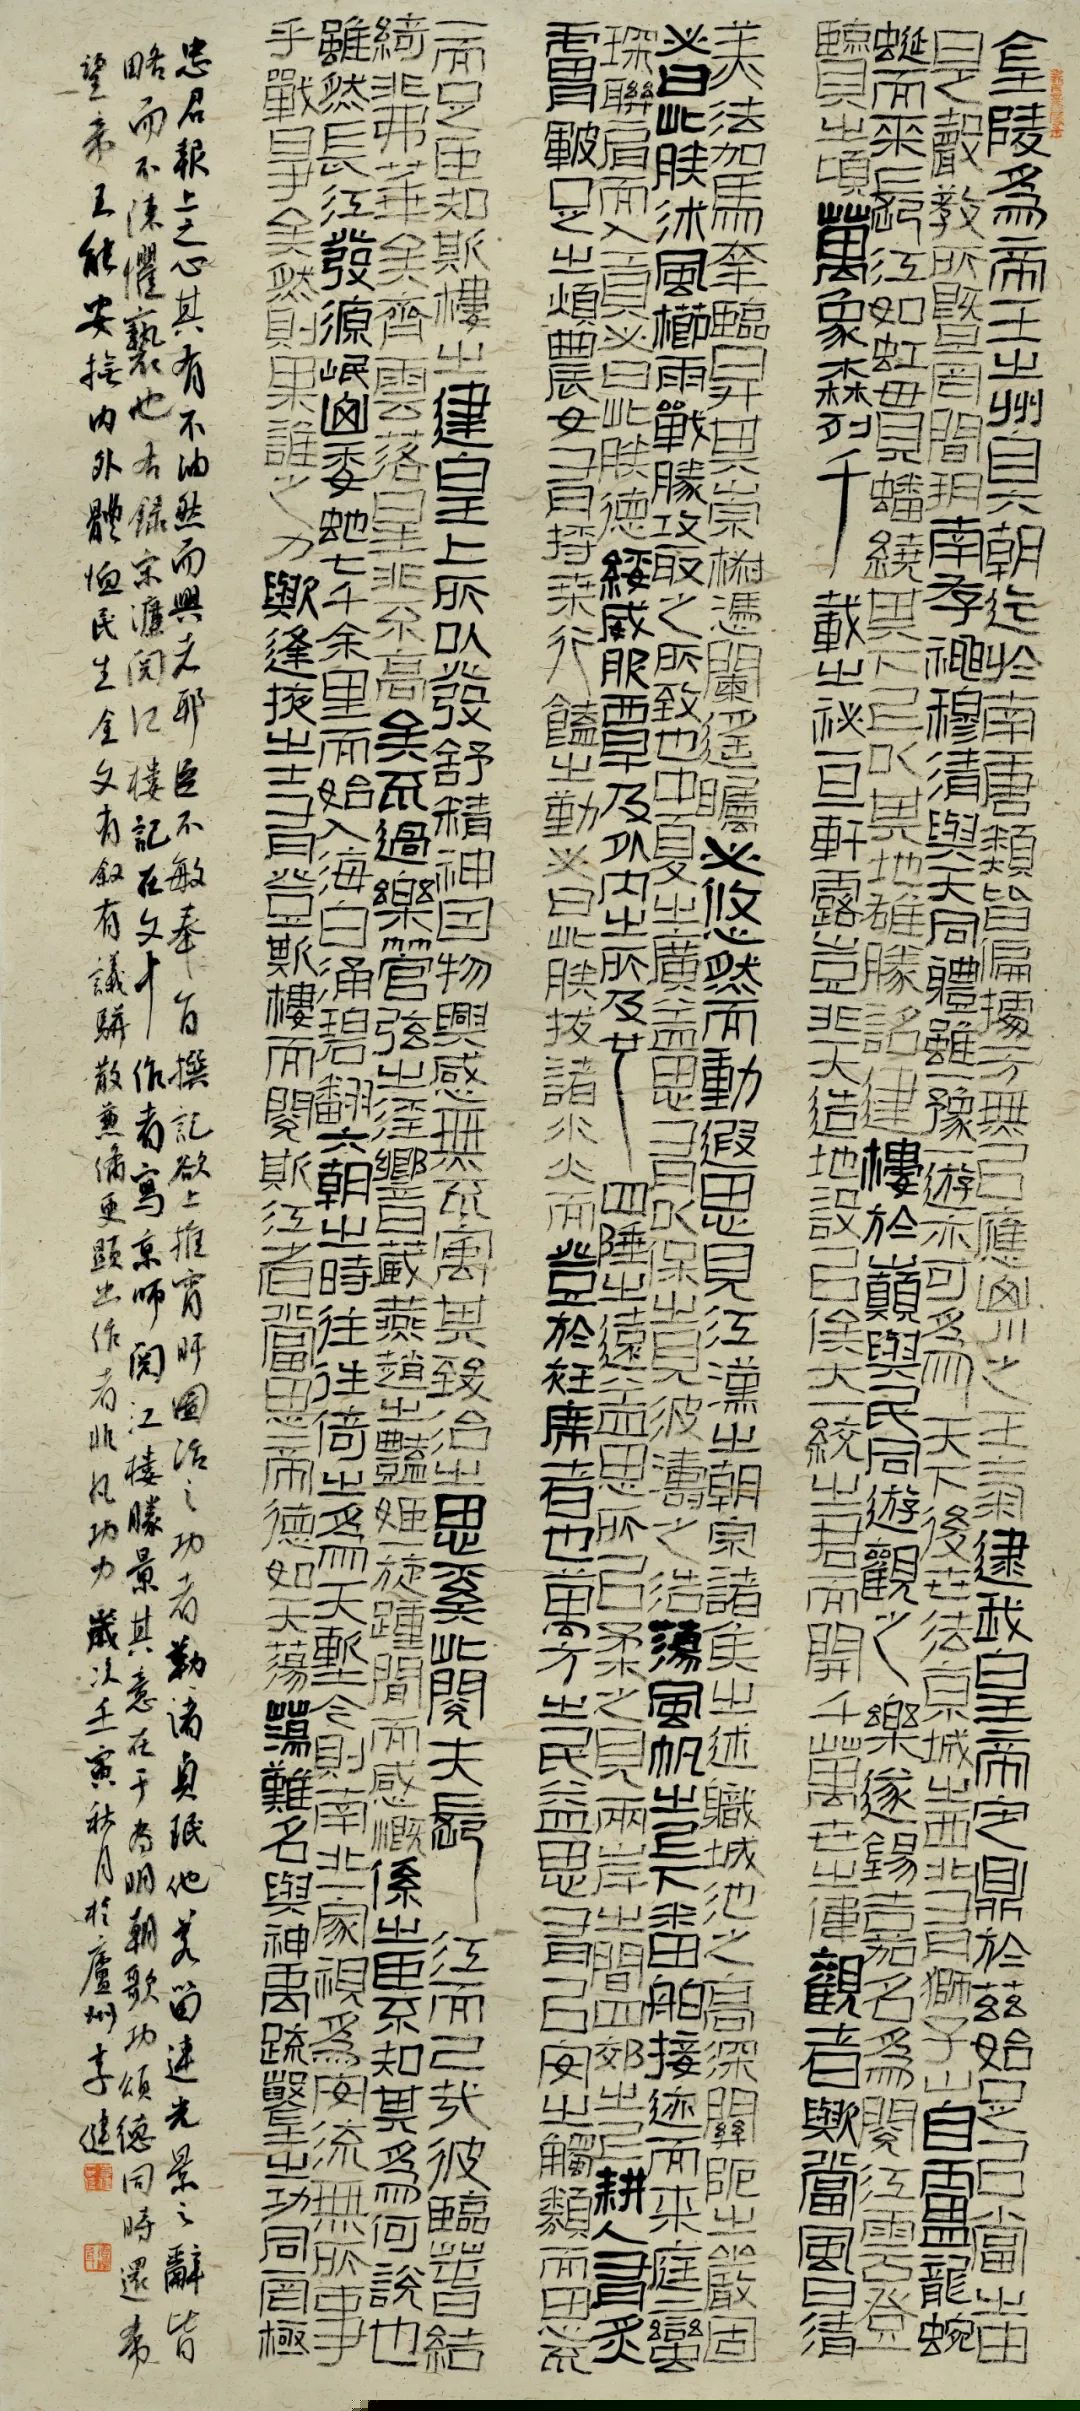 金陵為帝王之州自六朝迄於南唐類皆偏據一方無以應山川之王氣逮我皇帝定鼎於茲始足以當之由
是聲教所暨罔間朔南存神穆清與天同體雖一豫一遊亦可為天下後世法京城之西北有獅子山自盧龍蜿
蜒而來長江如虹貫蟠繞其下上以其地雄勝詔建樓於巔與民同遊觀之樂遂錫嘉名為閱江云登
覽之頃萬象森列千載之祕一旦軒露豈非天造地設以俟大一統之君而開千萬世之偉觀者歟當風日清
美法駕幸臨升其崇椒憑闌遙矚必悠然而動遐思見江漢之朝宗諸侯之述職城池之高深關阨之嚴固
必曰此朕沐風櫛雨戰勝攻取之所致也中夏之廣益思有以保之見波濤之浩蕩風帆之上下番舶接迹而來庭蠻
琛聯肩而入貢必曰此朕德綏威服覃及外内之所及也四陲之遠益思所以柔之見兩岸之間四郊之上耕人有炙
膚皸足之煩農女有捋桑行饁之勤必曰此朕拔諸水火而登於衽席者也萬方之民益思有以安之觸類而思不
一而足臣知斯樓之建皇上所以發舒精神因物興感無不寓其致治之思奚此閱夫長江而已哉彼臨春結
綺非弗華矣齊雲落星非不高矣不過樂管弦之淫響藏燕趙之豔姬一旋踵間而感慨係之臣不知其為何說也
雖然長江發源岷山委蛇七千余里而始入海白涌碧翻六朝之時往往倚之為天塹今則南北一家視為安流無所事
乎戰爭矣然則果誰之力歟逢掖之士有登斯樓而閱斯江者當思帝德如天蕩蕩難名與神禹疏鑿之功同一罔極
忠君報上之心其有不油然而興者耶臣不敏奉旨撰記欲上推宵旰圖治之功者勒諸貞珉他若留連光景之辭皆
略而不陳懼褻也右錄宋濂閱江樓記在文中作者寫京師閱江樓勝景其意在于為明朝歌功頌德同時還希
望帝王能安撫内外體恤民生全文有叙有議駢散兼備更顯出作者非凡功力歲次壬寅秋月於廬州李健